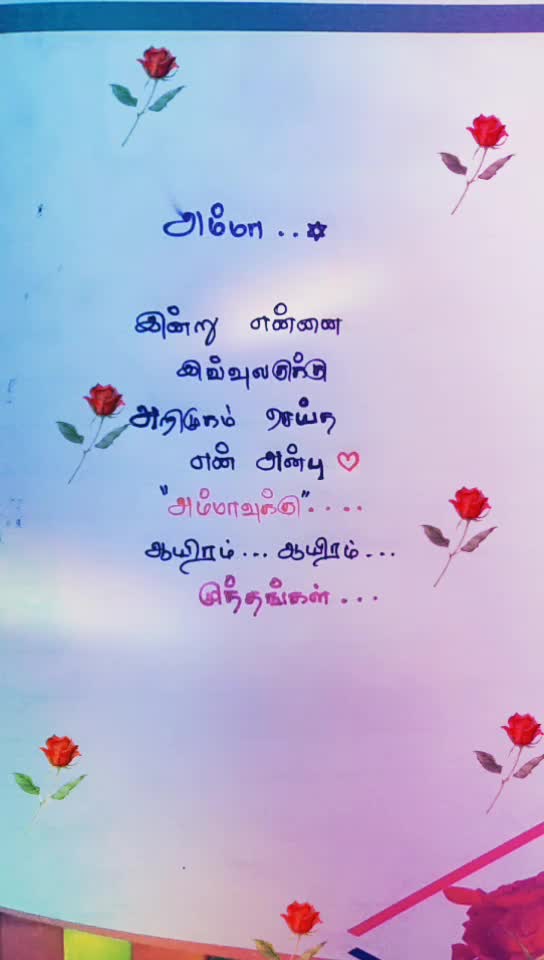 அம்மா ..✡
இன்று என்னை
இவ்வுலகுக்கு
அறிமுகம் செய்த
என் அன்பு ♡
"அம்மாவுக்கு"....
ஆயிரம்... ஆயிரம்...
முத்தங்கள்...